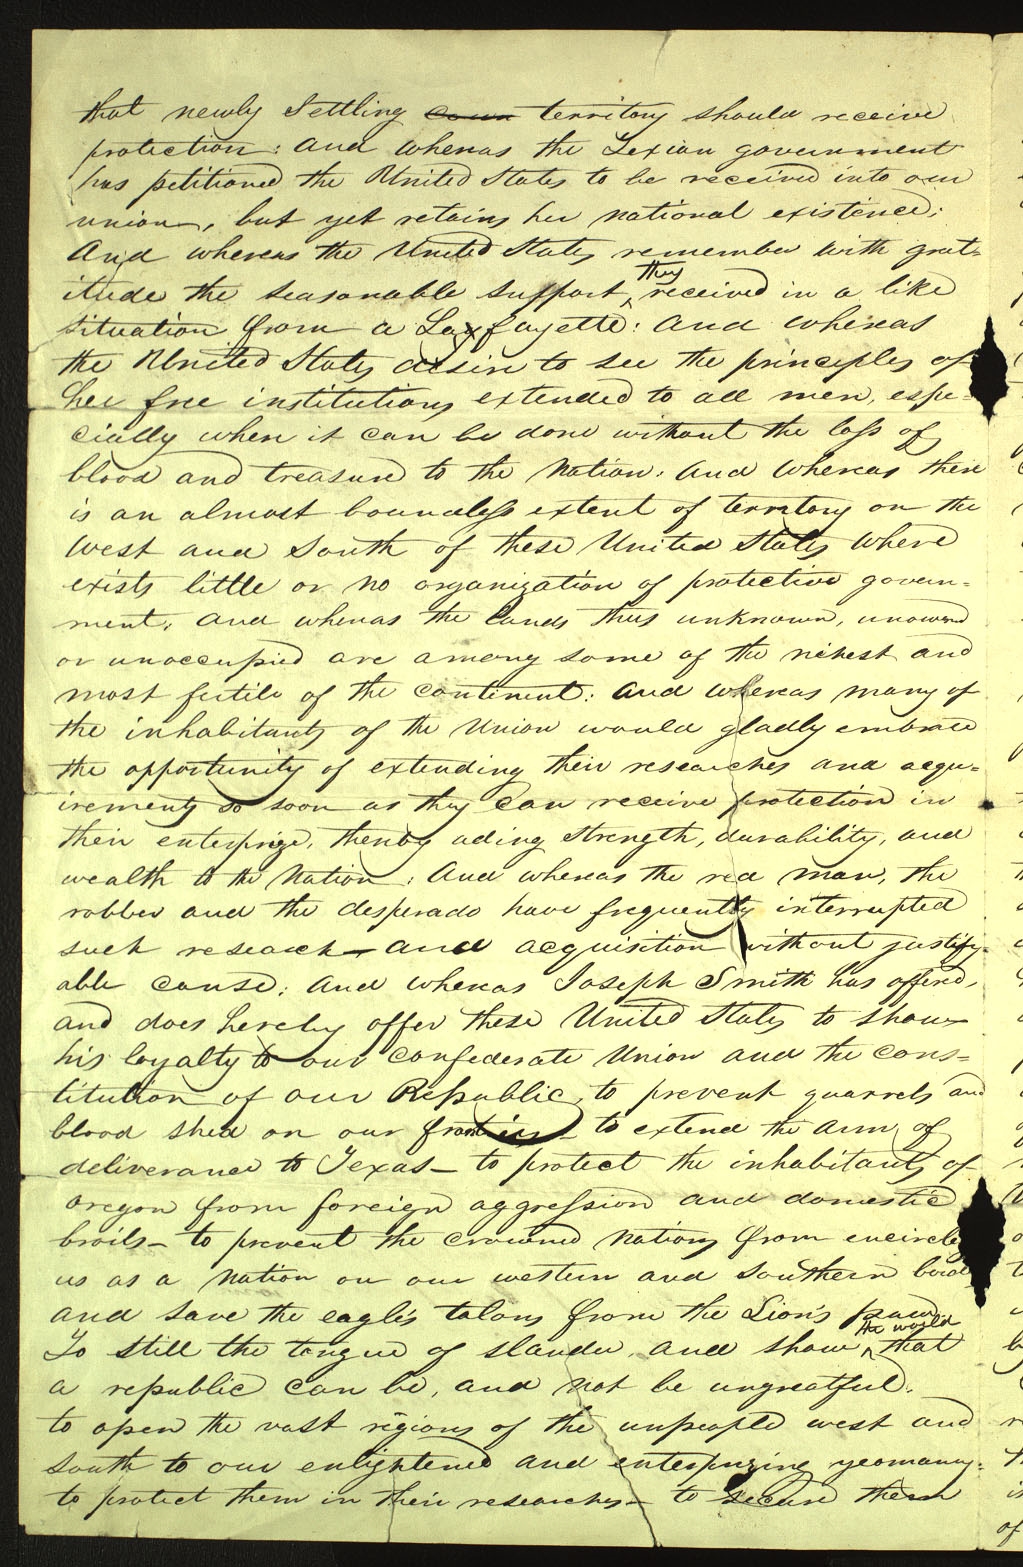 that newly Settling coun territory should receive
protection: and whereas the Texian government
has petitioned the United States to be received into our
union, but yet retains her national existence;
And whereas the United States remember with grat-
itude the seasonable support they received in a like
situation from a La fayette: and whereas
the United States desire to see the principles of
her free institutions extended to all men, espe=
cially when it can be done without the loss of
blood and treasure to the Nation: And Whereas there
is an almost boundless extent of territory on the
West and South of these United States Where
exists little or no organization of protective govern=
ment; and whereas the lands thus unknown, unowned
or unoccupied are among some of the richest and
most fertile of the continent: And whereas many of
the inhabitants of the Union would gladly embrace
the opportunity of extending their researches and acqu=
irements so soon as they can receive protection in
their enterprize, thereby ading strength, durability, and
wealth to the Nation: And whereas the red man, the
robber and the desperado have frequently interrupted
such research and acquisition without justify-
able cause; And whereas Joseph Smith has offered,
and does hereby offer these United States to show
his loyalty to our confederate Union and the cons=
titution of our Republic, to prevent quarrels and
blood shed on our frontier– to extend the arm of
deliverance to Texas– to protect the inhabitants of
oregon from foreign aggression and domestic
broils– to prevent the crowned nations from encircling
us as a nation on our western and southern
and save the eagle's talons from the Lion's paw
To still the tongue of slander, and show the world that
a republic can be, and not be ungreatful.
to open the vast regions of the unpeopled west and
south to our enlightened and enterprizing yeomanry.
to protect them in their researches– to secure them